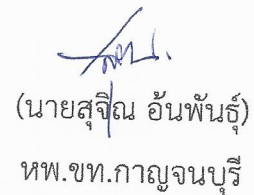 (นายสุจิณ อ้นพันธุ์)
หพ.ขท.กาญจนบุรี